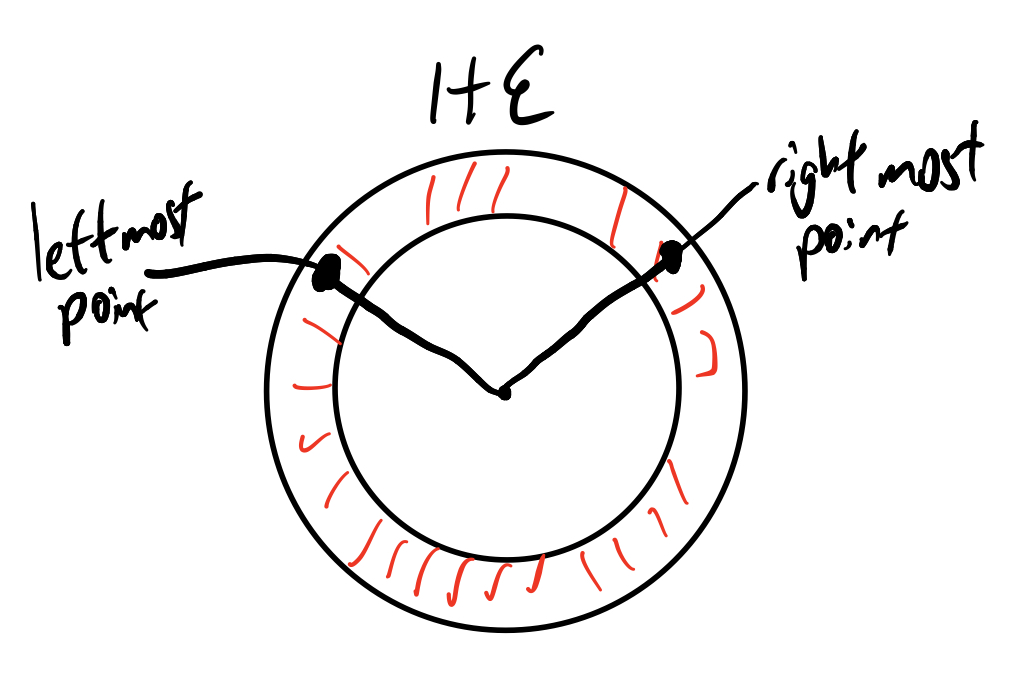 1+ε
leftmost
point
right most
point